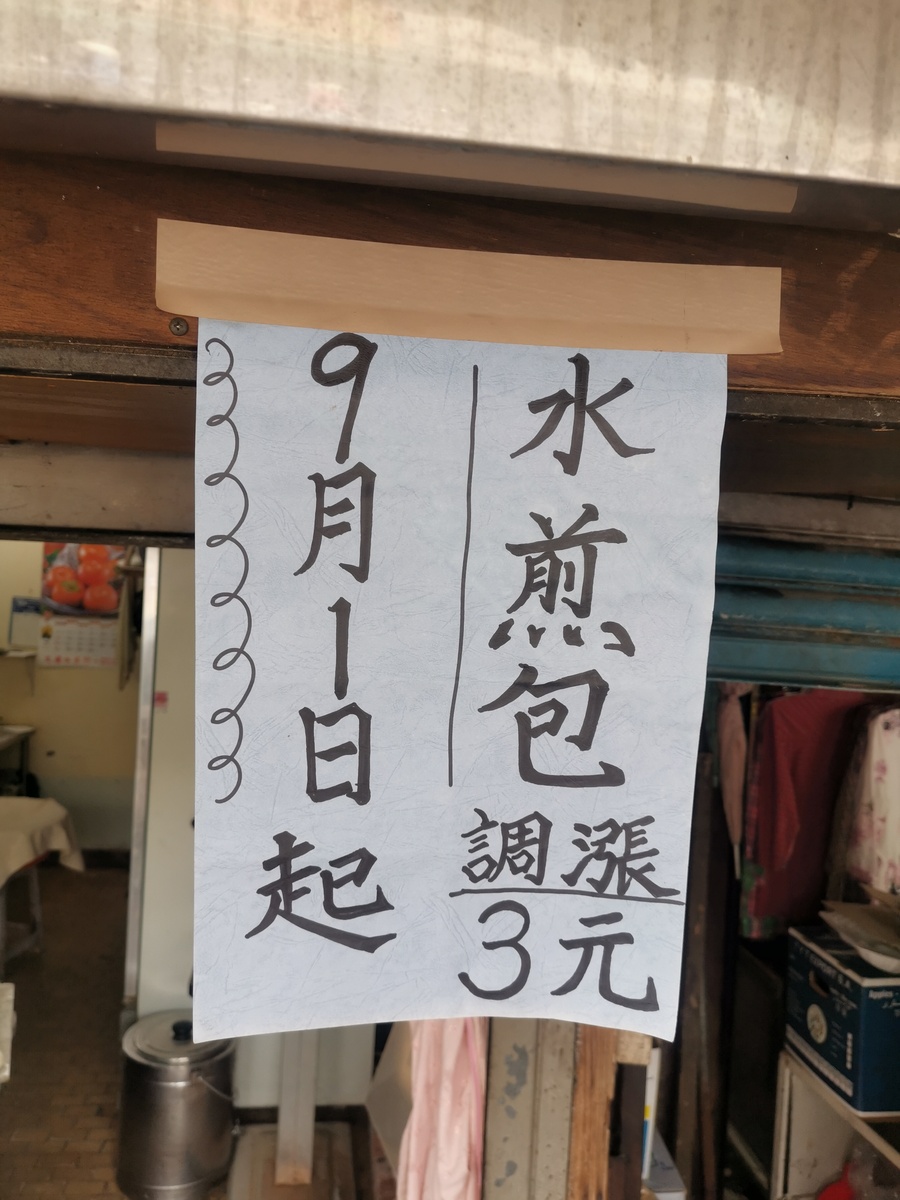 水煎包
調漲
3元
9月1日起